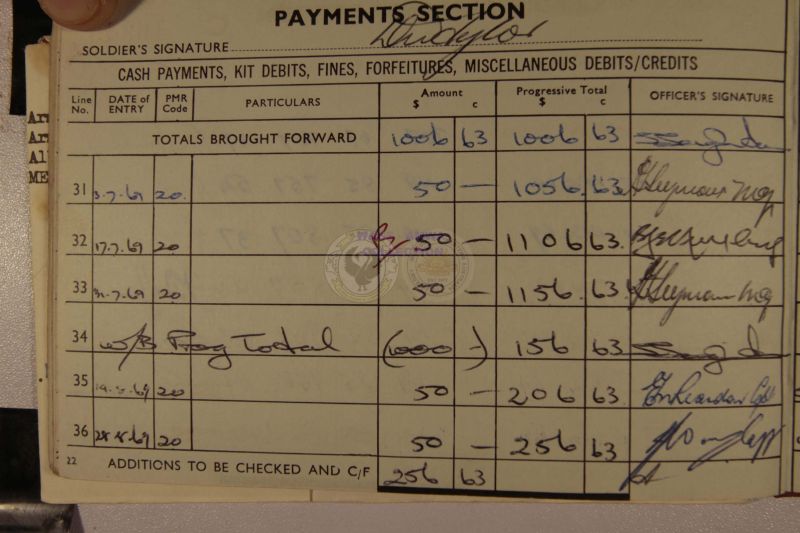 PAYMENTS SECTION
SOLDIER'S SIGNATURE
CASH PAYMENTS, KIT DEBITS, FINES, FORFEITURES, MISCELLANEOUS DEBITS/CREDITS
Line No. DATE of ENTRY PMR Code PARTICULARS Amount $ c Progressive Total $ c OFFICER'S SIGNATURE
TOTALS BROUGHT FORWARD 1006 63 1006 63
31 3.7.69 20. 50 — 1056. 63
32 17.7.69 20 50 — 1106 63.
33 31.7.69 20 50 — 1156. 63.
34 w/B Prog Total (1000 —) 156 63
35 14.8.69 20 50 — 206 63
36 28.8.69 20 50 — 256 63
22 ADDITIONS TO BE CHECKED AND C/F 256 63